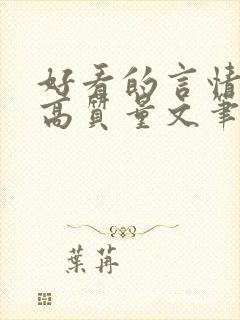 好看的言情
高质量文笔
葉苒